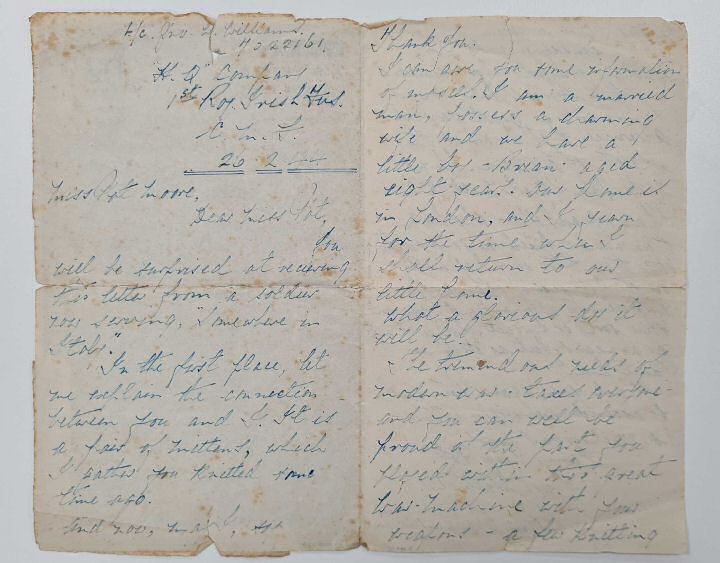 L/C. Jno. H. Williams.
7022161.
"H.Q" Company
1st Roy. Irish Fus.
C. M. F.
26 2 44
Miss Pat Moore,
Dear Miss Pat,
You
will be surprised at recieving
this letter from a soldier
now serving, "Somewhere in
Italy."
In the first place, let
me explain the connection
between you and I. It is
a pair of mittens, which
I gather you knitted some
time ago.
And now, may I, say
Thank You.
I can give you some information
of myself. I am a married
man, possess a charming
wife and we have a
little boy - Brian aged
eight years. Our home is
in London, and I yearn
for the time when I
shall return to our
little home.
What a glorious day it
will be.
The tremendous needs of
modern war - taxes everyone
and you can well be
proud of the part you
played within this great
War-machine with your
weapons - a few knitting